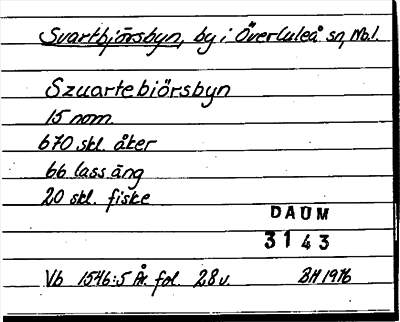 Svartbjörsbyn, by i Överluleå sn, Nb.l.
Szuartebiörsbyn
15 nom.
670 skl. åker
66 lass äng
20 skl. fiske
DAUM
3143
Vb 1546:5 År. fol. 28v. BH 1976